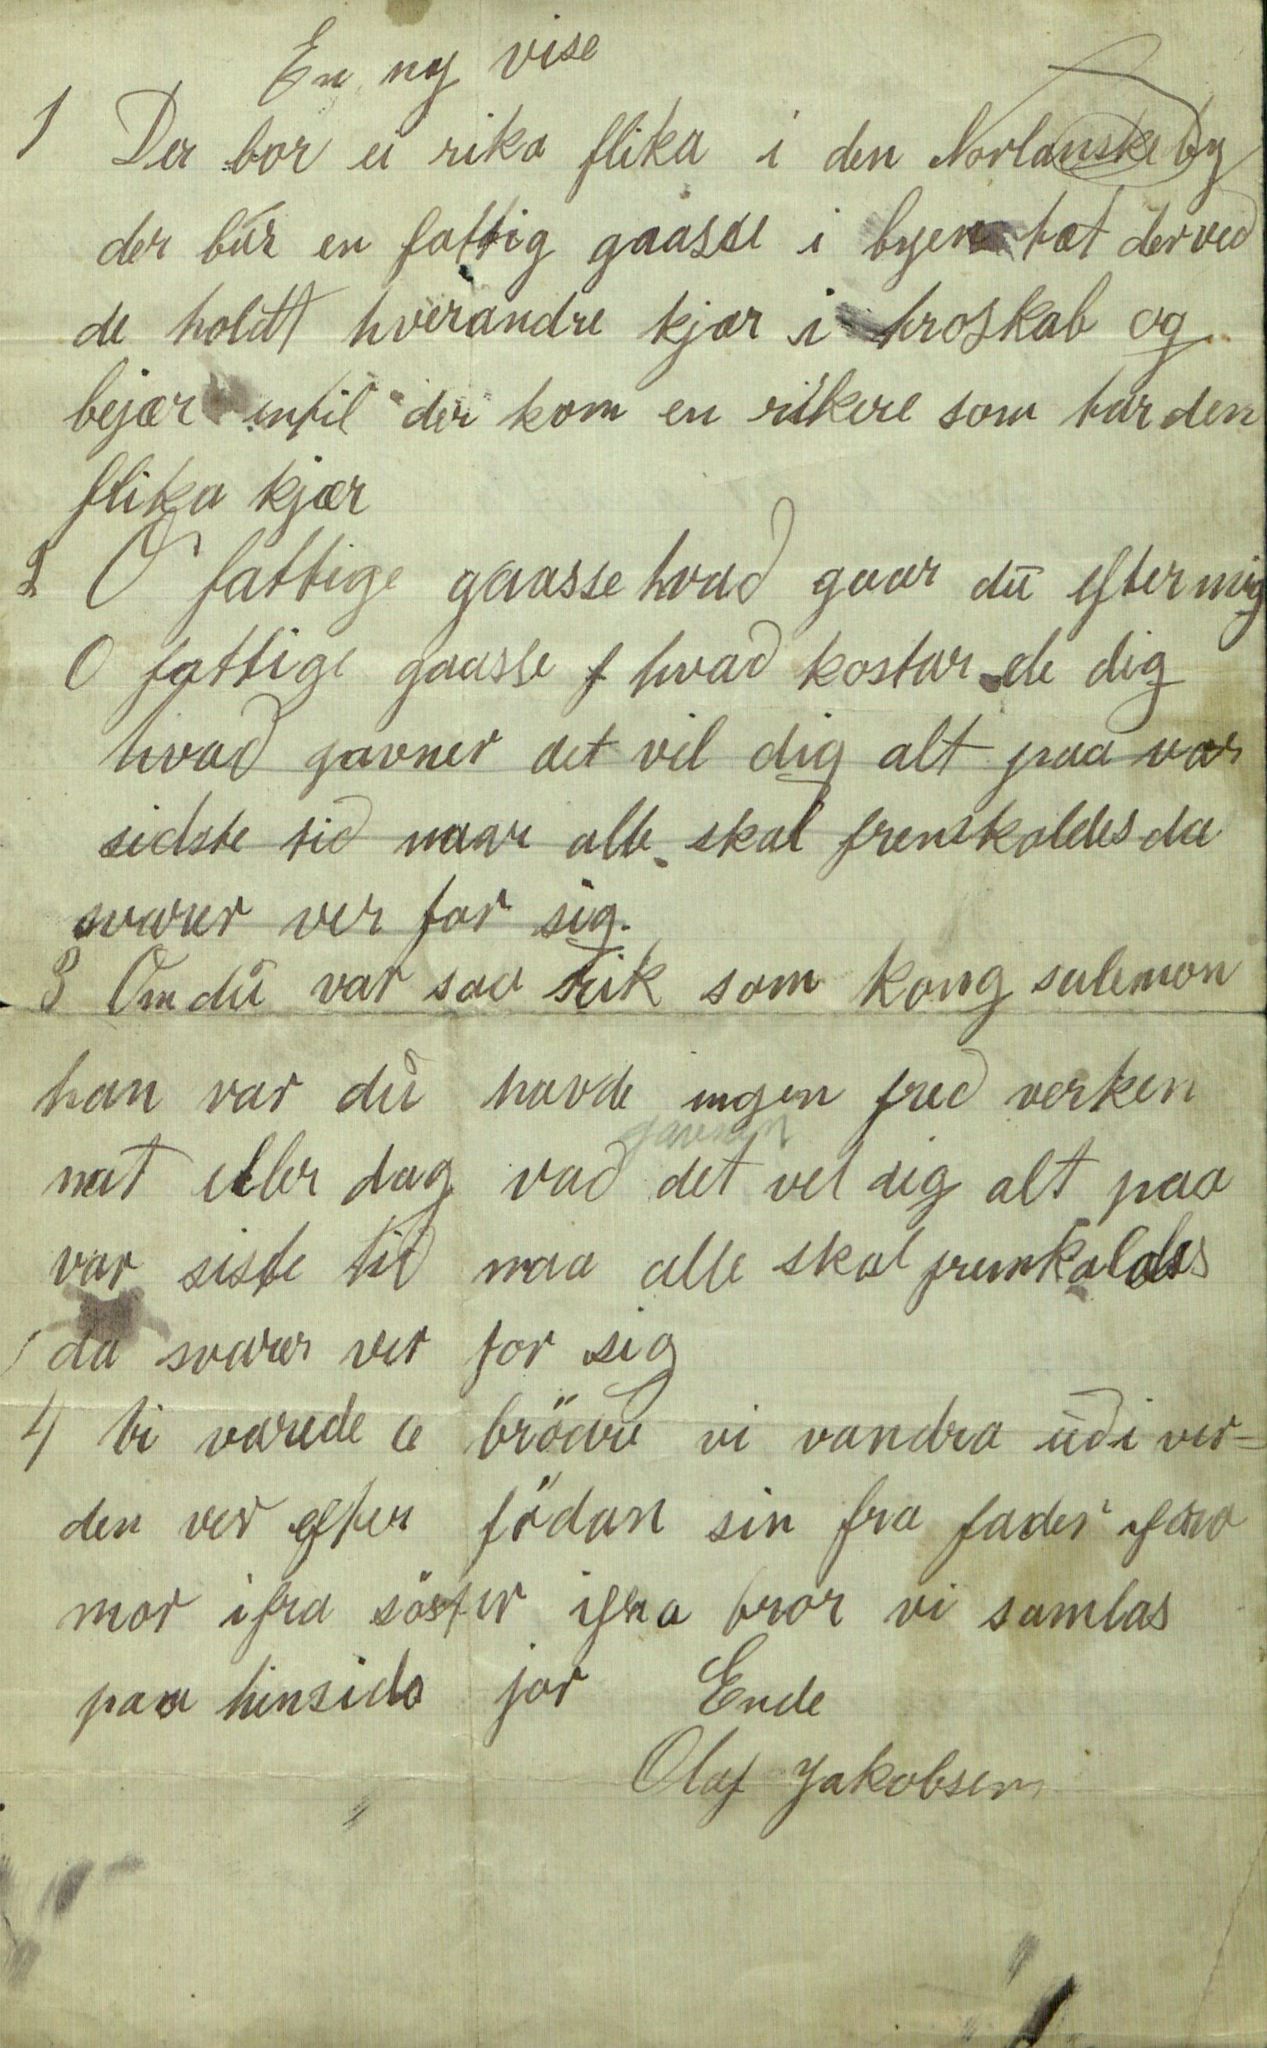 En ny vise
1 Der bor ei rika flika i den Norlanske by
der bur en fattig gaasse i byen tæt derved
de holdt hverandre kjær i troskab og
bejær intil der kom en rikere som tar den
flika kjær
2 O fattige gaasse hvad gaar du efter mig
O fattige gaasse hvad kostar de dig
hvad gavner det vil dig alt paa vor
sidste tid naar alle skal fremkaldes da
svarer ver for sig.
3 Om du var saa rik som kong salemon
han var du havde ingen fred verken
gavner
nat eller dag vad det vel dig alt paa
var siste tid naa alle skal fremkaldes
da svarer ver for sig
4 vi varede brödre vi vandra udi ver=
den ver efter födan sin fra fader ifra
mor ifra söster ifra bror vi samlas
paa hinsida jor Ende
Olaf Jakobsen